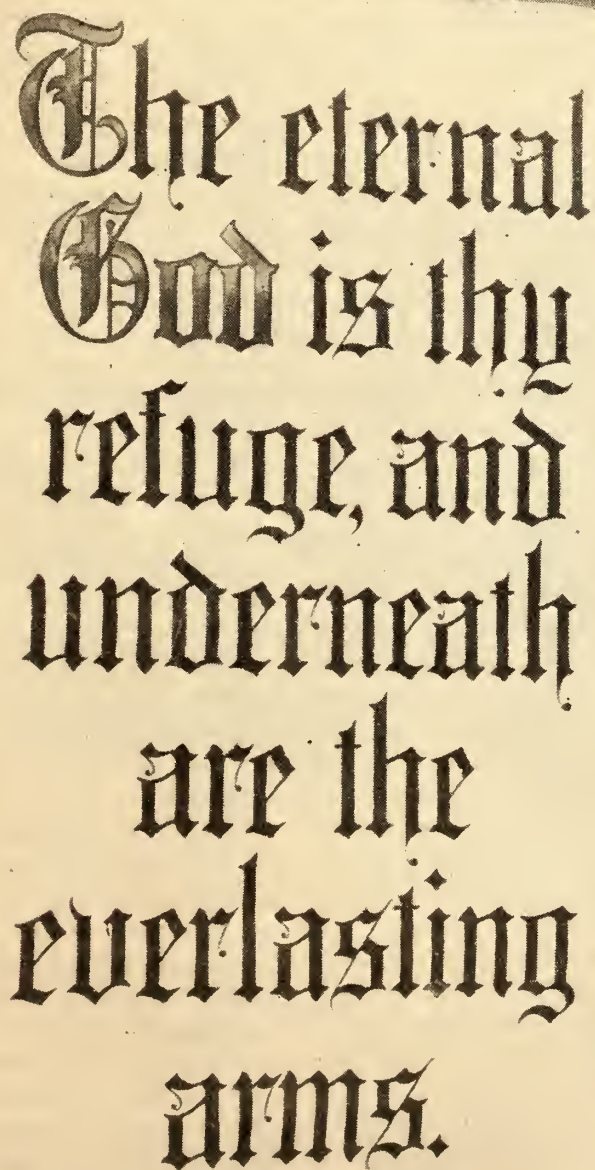 The eternal
God is thy
refuge, and
underneath
are the
everlasting
arms.